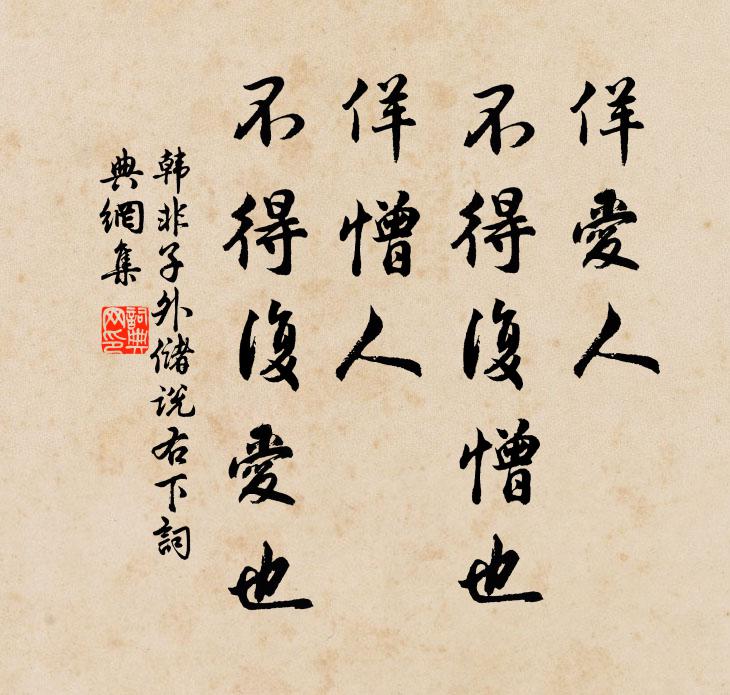 佯愛人
不得復憎也
佯憎人
不得復愛也
韩非子外儲说右下詞
典網集
詞典
网印